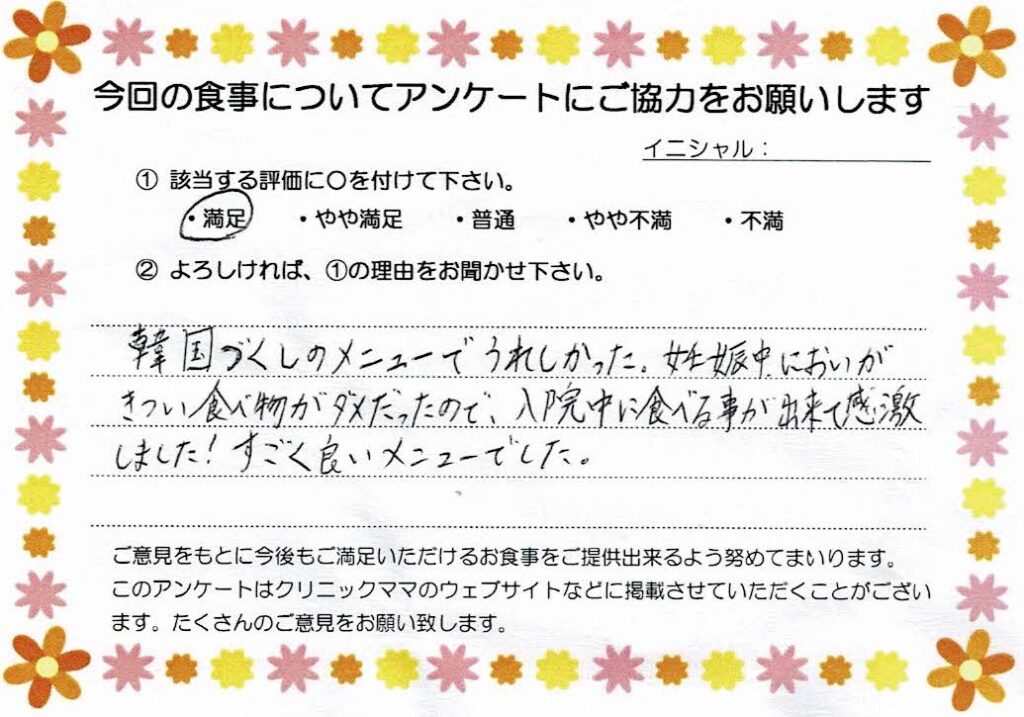 今回の食事についてアンケートにご協力をお願いします
イニシャル：
① 該当する評価に〇を付けて下さい。
・満足 ・やや満足 ・普通 ・やや不満 ・不満
② よろしければ、①の理由をお聞かせ下さい。
韓国づくしのメニューでうれしかった。妊娠中においが
きつい食べ物がダメだったので、入院中に食べる事が出来て感激
しました！すごく良いメニューでした。
ご意見をもとに今後もご満足いただけるお食事をご提供出来るよう努めてまいります。
このアンケートはクリニックママのウェブサイトなどに掲載させていただくことがござい
ます。たくさんのご意見をお願い致します。